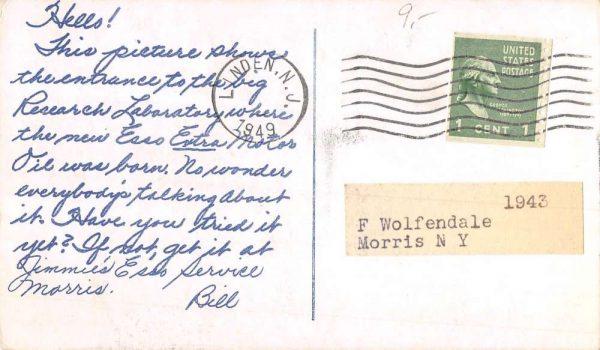 Hello!
This picture shows
the entrance to the big
Research Laboratory where
the new Esso Extra Motor
Oil was born. No wonder
everybody's talking about
it. Have you tried it
yet? If not, get it at
Jimmie's Esso Service
Morris.
Bill
9,-
LINDEN, N.J.
1949
UNITED
STATES
POSTAGE
1 CENT 1
1943
F Wolfendale
Morris N Y